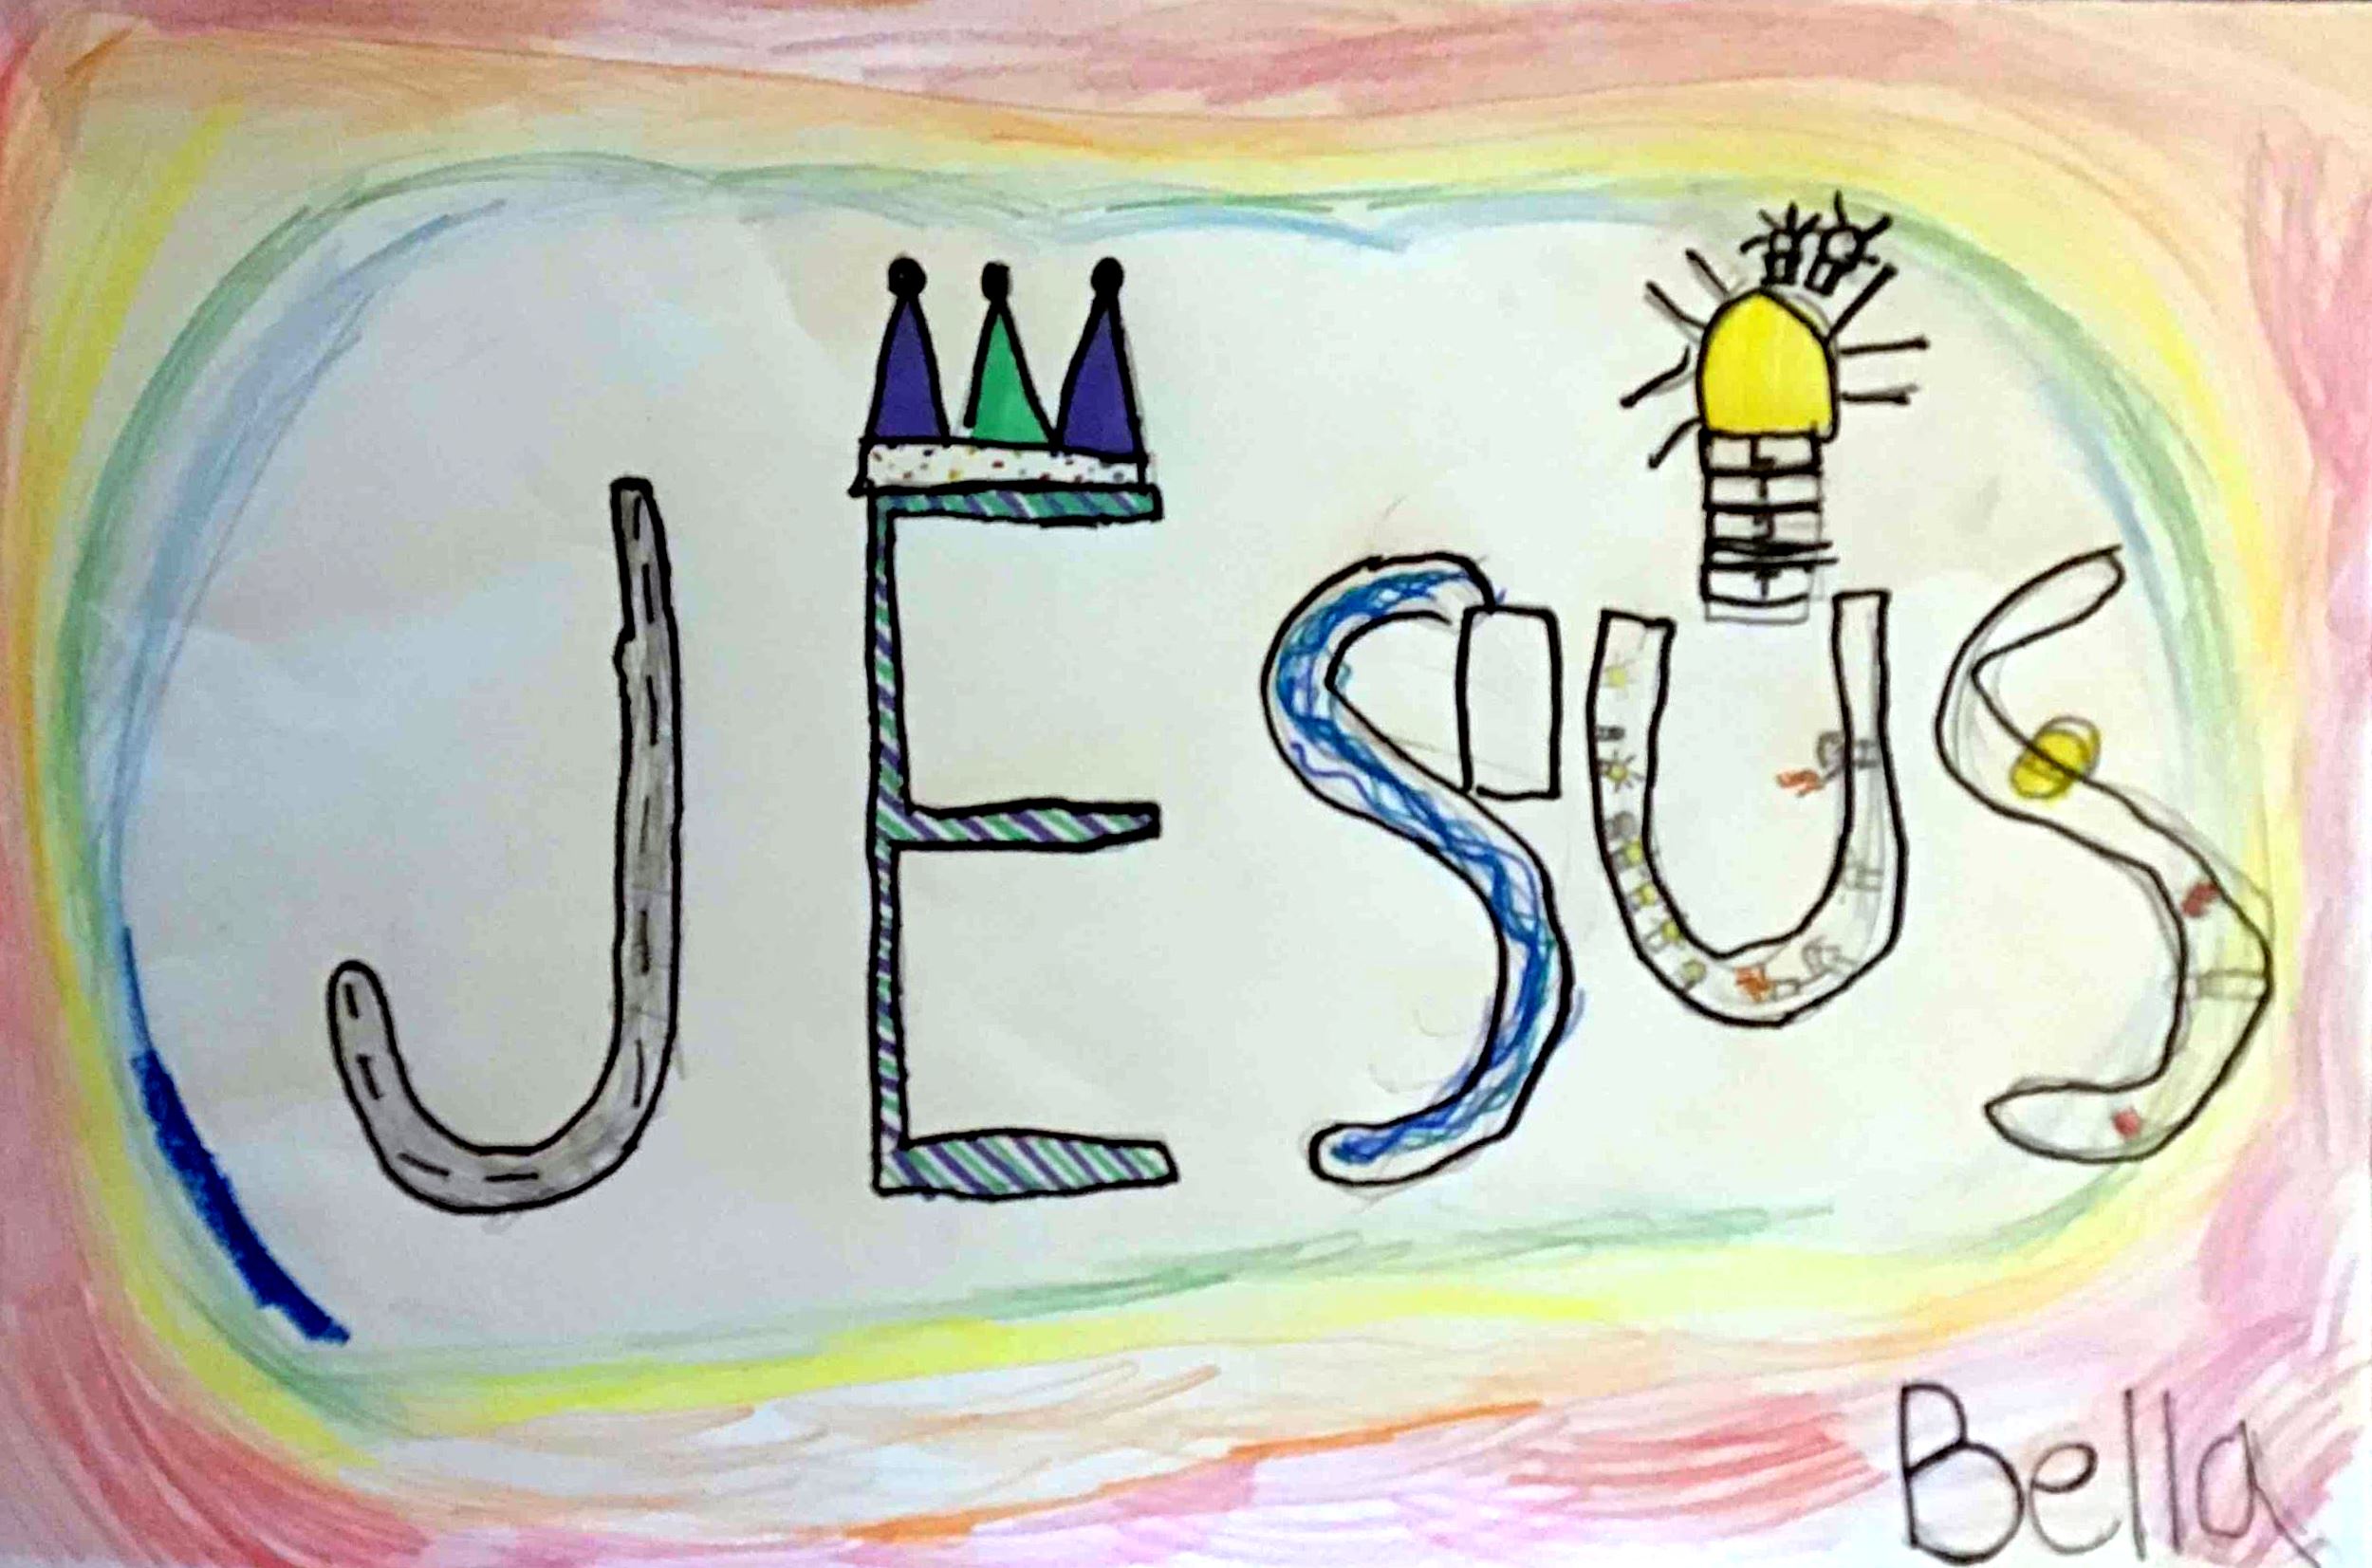 JESUS
Bella